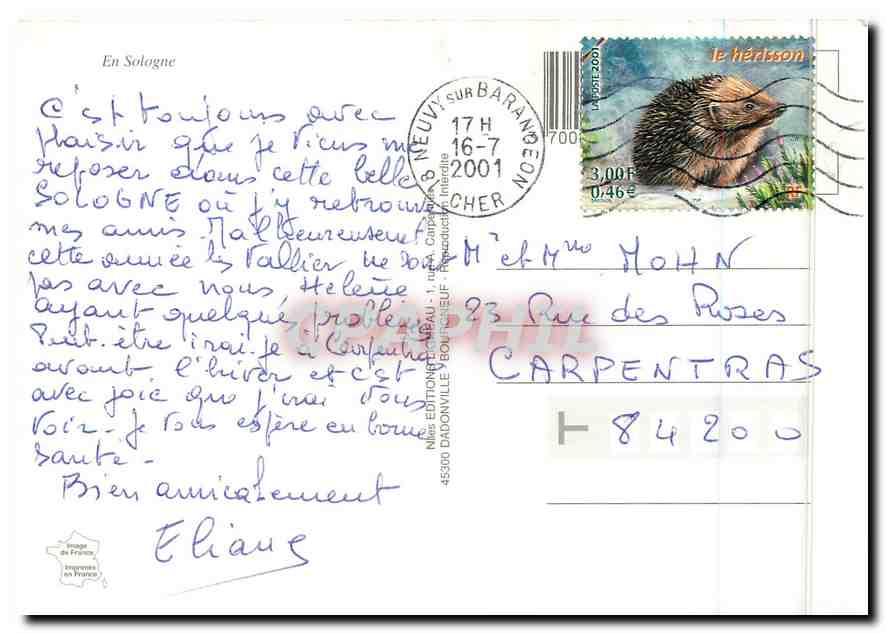 En Sologne
C'est toujours avec
plaisir que je viens me
reposer dans cette belle
SOLOGNE où j'y retrouve
mes amis. Malheureusement
cette année les Vallier ne sont
pas avec nous, Helene
ayant quelques problèmes
Peut-être irai-je à Carpentras
avant l'hiver et c'est
avec joie que j'irai vous
voir - Je vous espère en bonne
santé -
Bien amicalement
Eliane
Image
de France
Imprimée
en France
Nlles EDITIONS LOMPEAU - 1, rue A. Carpentier
45300 DADONVILLE - BOURGNEUF - Reproduction Interdite
NEUVY SUR BARANGEON
17 H
16-7
2001
CHER
700
LA POSTE 2001
le hérisson
3,00 F
0,46 €
Mr et Mme MOHN
23 Rue des Roses
CARPENTRAS
84200
CPAPHIL